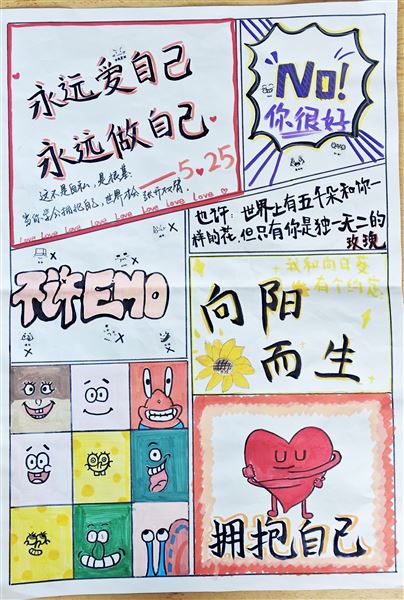 永远爱自己
永远做自己
——5.25
这不是自私，是很慕
当你学会拥抱自己，世界才会张开双臂。
Love Love Love Love Love Love Love Love
No!
你很好
也许，世界上有五千朵和你一
样的花，但只有你是独一无二的
玫瑰
不许EMO
我和向日葵
有个约定
向阳
而生
拥抱自己